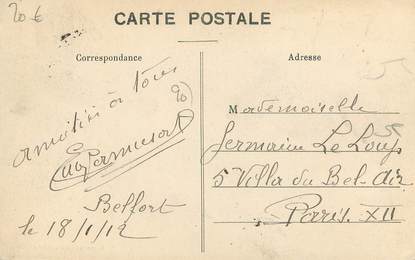 20 €
CARTE POSTALE
Correspondance
Adresse
amitiés à tous
Belfort
le 18/1/12
Mademoiselle
Germaine Le Loup
5 Villa du Bel-Air
Paris. XII